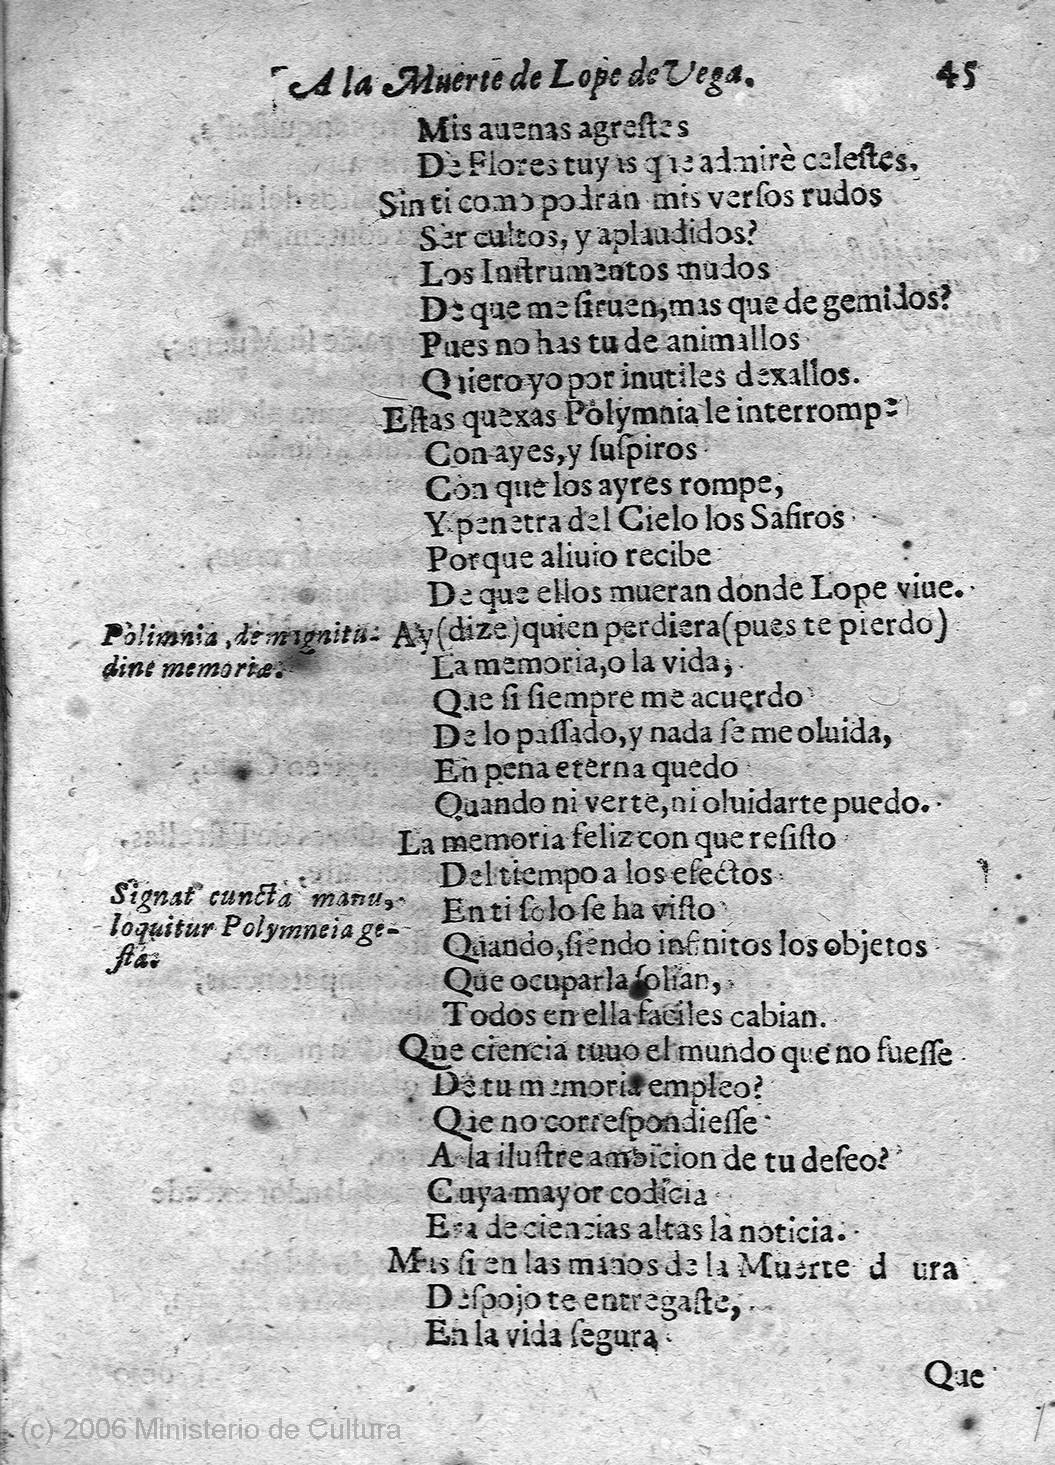 A la Muerte de Lope de Vega. 45
Mis auenas agrestes
De Flores tuyas que admirè celestes,
Sin ti como podran mis versos rudos
Ser cultos, y aplaudidos?
Los Instrumentos mudos
De que me siruen, mas que de gemidos?
Pues no has tu de animallos
Quiero yo por inutiles dexallos.
Estas quexas Polymnia le interrompe
Con ayes, y suspiros
Con que los ayres rompe,
Y penetra del Cielo los Safiros
Porque aliuio recibe
De que ellos mueran donde Lope viue.
Polimnia, de magnitu-
dine memoriæ.
Ay (dize) quien perdiera (pues te pierdo)
La memoria, o la vida;
Que si siempre me acuerdo
De lo passado, y nada se me oluida,
En pena eterna quedo
Quando ni verte, ni oluidarte puedo.
La memoria feliz con que resisto
Del tiempo a los efectos
Signat cuncta manu,
loquitur Polymneia ge-
sta.
En ti solo se ha visto
Quando, siendo infinitos los objetos
Que ocuparla solian,
Todos en ella faciles cabian.
Que ciencia tuuo el mundo que no fuesse
De tu memoria empleo?
Que no correspondiesse
A la ilustre ambicion de tu deseo?
Cuya mayor codicia
Era de ciencias altas la noticia.
Mas si en las manos de la Muerte d ura
Despojo te entregaste,
En la vida segura
Que
(c) 2006 Ministerio de Cultura